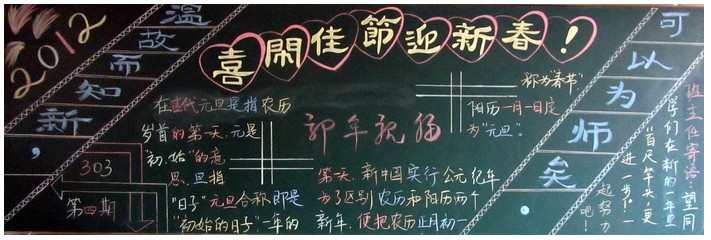 2012
温故而知新，
喜闹佳節迎新春！
可以为师矣
303
第四期
在古代元旦是指农历
岁首的第一天.元是
"初.始"的意
思.旦指
"日子"元旦合称即是
"初始的日子"一年的
第一天.新中国实行公元纪年
为了区别农历和阳历两个
新年.便把农历正月初一
称为"春节"
阳历一月一日定
为"元旦".
新年祝福
班主任寄语:望同
学们在新的一年里
"百尺竿头,更
进一步"!一
起努力
吧!